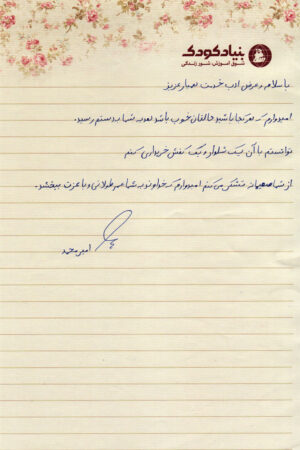 بنیاد کودک
شوق آموزش، شور زندگی
با سلام و عرض ادب خدمت همیار عزیز
امیدوارم که هر کجا باشید حالتان خوب باشد هدیه شما به دستم رسید.
توانستم با آن یک شلوار و یک کفش خریداری کنم
از شما صمیمانه تشکر می کنم امیدوارم که خداوند به شما عمر طولانی و با عزت ببخشد.
امیرمحمد